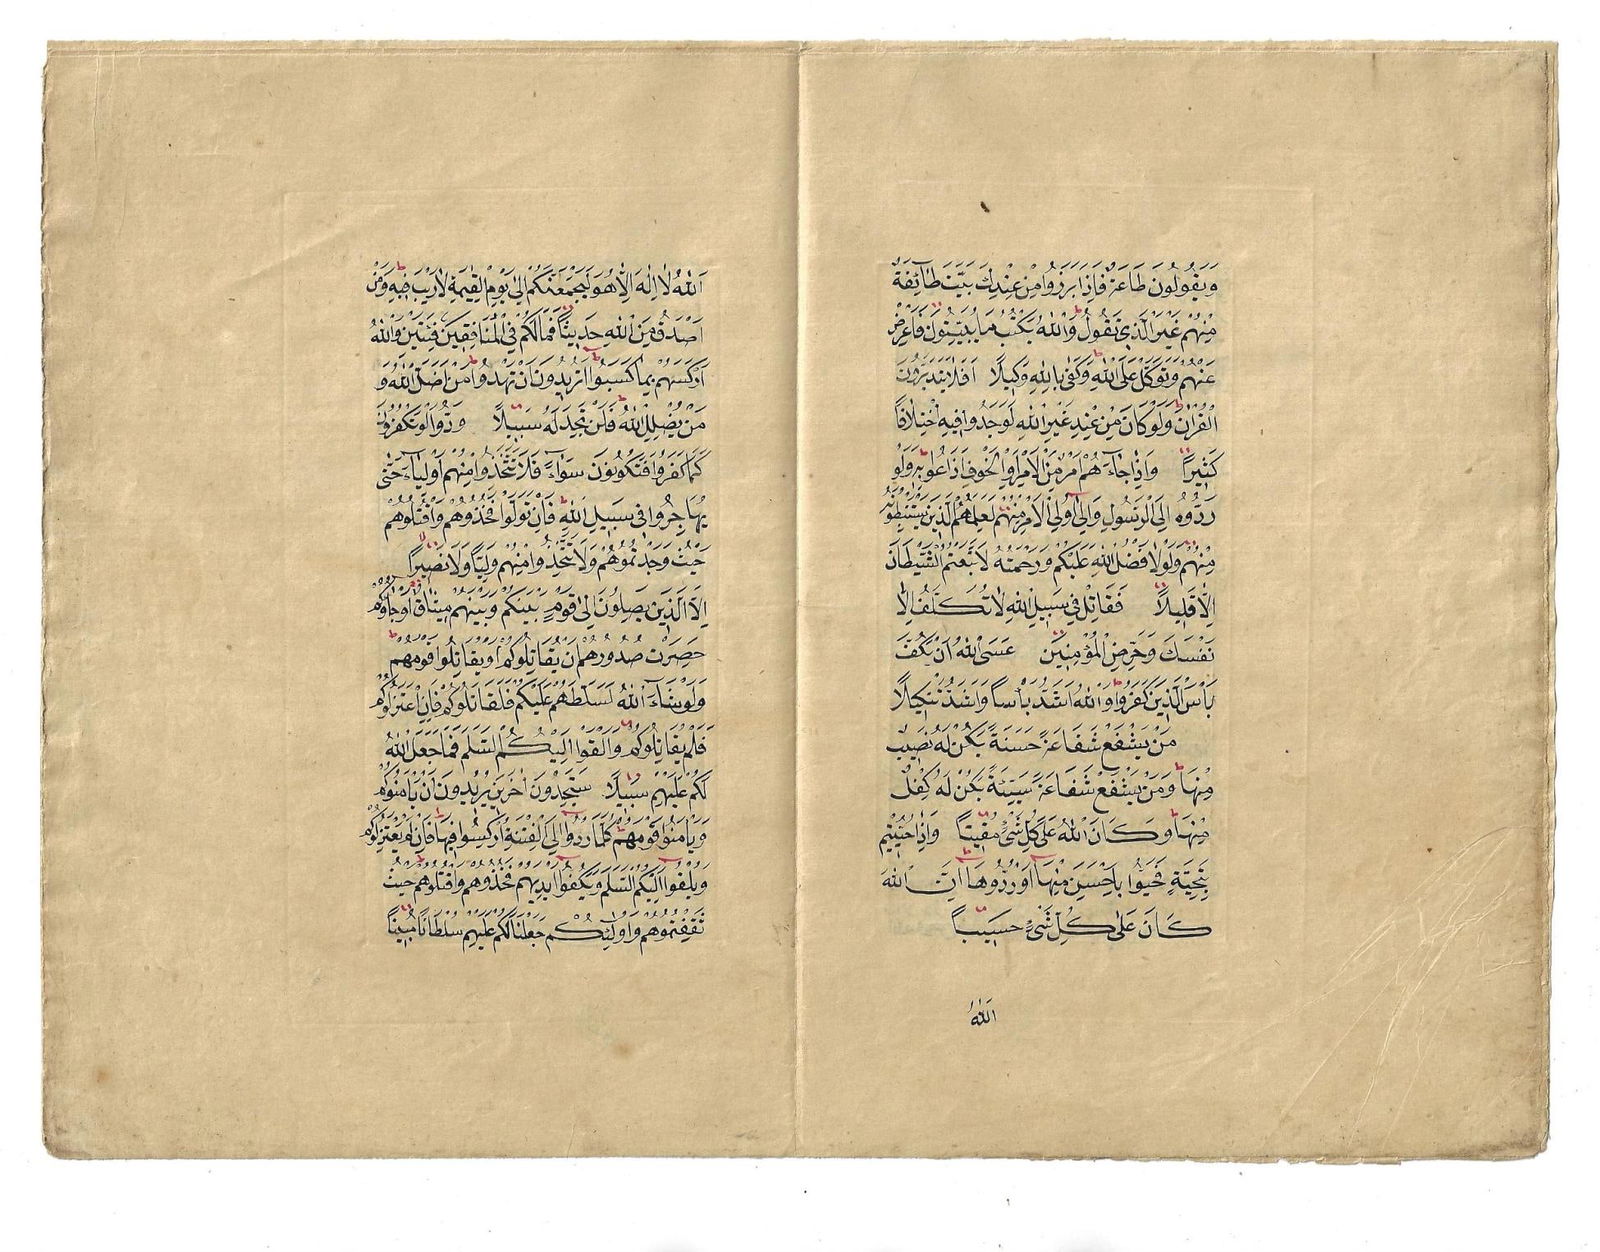 وَيَقُولُونَ طَاعَةٌ فَاِذَا بَرَزُوا مِنْ عِنْدِكَ بَيَّتَ طَٓائِفَةٌ
مِنْهُمْ غَيْرَ الَّذ۪ي تَقُولُ وَاللّٰهُ يَكْتُبُ مَا يُبَيِّتُونَ فَاَعْرِضْ
عَنْهُمْ وَتَوَكَّلْ عَلَى اللّٰهِ وَكَفٰى بِاللّٰهِ وَك۪يلًا اَفَلَا يَتَدَبَّرُونَ
الْقُرْاٰنَ وَلَوْ كَانَ مِنْ عِنْدِ غَيْرِ اللّٰهِ لَوَجَدُوا ف۪يهِ اخْتِلَافًا
كَث۪يرًا وَاِذَا جَٓاءَهُمْ اَمْرٌ مِنَ الْاَمْنِ اَوِ الْخَوْفِ اَذَاعُوا بِه۪ وَلَوْ
رَدُّوهُ اِلَى الرَّسُولِ وَاِلٰٓى اُو۬لِي الْاَمْرِ مِنْهُمْ لَعَلِمَهُ الَّذ۪ينَ يَسْتَنْبِطُونَهُ
مِنْهُمْ وَلَوْلَا فَضْلُ اللّٰهِ عَلَيْكُمْ وَرَحْمَتُهُ لَاتَّبَعْتُمُ الشَّيْطَانَ
اِلَّا قَل۪يلًا فَقَاتِلْ ف۪ي سَب۪يلِ اللّٰهِ لَا تُكَلَّفُ اِلَّا
نَفْسَكَ وَحَرِّضِ الْمُؤْمِن۪ينَ عَسَى اللّٰهُ اَنْ يَكُفَّ
بَاْسَ الَّذ۪ينَ كَفَرُوا وَاللّٰهُ اَشَدُّ بَاْسًا وَاَشَدُّ تَنْك۪يلًا
مَنْ يَشْفَعْ شَفَاعَةً حَسَنَةً يَكُنْ لَهُ نَص۪يبٌ
مِنْهَا وَمَنْ يَشْفَعْ شَفَاعَةً سَيِّئَةً يَكُنْ لَهُ كِفْلٌ
مِنْهَا وَكَانَ اللّٰهُ عَلٰى كُلِّ شَيْءٍ مُق۪يتًا وَاِذَا حُيّ۪يتُمْ
بِتَحِيَّةٍ فَحَيُّوا بِاَحْسَنَ مِنْهَٓا اَوْ رُدُّوهَا اِنَّ اللّٰهَ
كَانَ عَلٰى كُلِّ شَيْءٍ حَس۪يبًا
اَللّٰهُ
اَللّٰهُ لَٓا اِلٰهَ اِلَّا هُوَ لَيَجْمَعَنَّكُمْ اِلٰى يَوْمِ الْقِيٰمَةِ لَا رَيْبَ ف۪يهِ وَمَنْ
اَصْدَقُ مِنَ اللّٰهِ حَد۪يثًا فَمَا لَكُمْ فِي الْمُنَافِق۪ينَ فِئَتَيْنِ وَاللّٰهُ
اَرْكَسَهُمْ بِمَا كَسَبُوا اَتُر۪يدُونَ اَنْ تَهْدُوا مَنْ اَضَلَّ اللّٰهُ وَ
مَنْ يُضْلِلِ اللّٰهُ فَلَنْ تَجِدَ لَهُ سَب۪يلًا وَدُّوا لَوْ تَكْفُرُونَ
كَمَا كَفَرُوا فَتَكُونُونَ سَوَٓاءً فَلَا تَتَّخِذُوا مِنْهُمْ اَوْلِيَٓاءَ حَتّٰى
يُهَاجِرُوا ف۪ي سَب۪يلِ اللّٰهِ فَاِنْ تَوَلَّوْا فَخُذُوهُمْ وَاقْتُلُوهُمْ
حَيْثُ وَجَدْتُمُوهُمْ وَلَا تَتَّخِذُوا مِنْهُمْ وَلِيًّا وَلَا نَص۪يرًا
اِلَّا الَّذ۪ينَ يَصِلُونَ اِلٰى قَوْمٍ بَيْنَكُمْ وَبَيْنَهُمْ م۪يثَاقٌ اَوْ جَٓاؤُ۫كُمْ
حَصِرَتْ صُدُورُهُمْ اَنْ يُقَاتِلُوكُمْ اَوْ يُقَاتِلُوا قَوْمَهُمْ
وَلَوْ شَٓاءَ اللّٰهُ لَسَلَّطَهُمْ عَلَيْكُمْ فَلَقَاتَلُوكُمْ فَاِنِ اعْتَزَلُوكُمْ
فَلَمْ يُقَاتِلُوكُمْ وَاَلْقَوْا اِلَيْكُمُ السَّلَمَ فَمَا جَعَلَ اللّٰهُ
لَكُمْ عَلَيْهِمْ سَب۪يلًا سَتَجِدُونَ اٰخَر۪ينَ يُر۪يدُونَ اَنْ يَاْمَنُوكُمْ
وَيَاْمَنُوا قَوْمَهُمْ كُلَّمَا رُدُّٓوا اِلَى الْفِتْنَةِ اُرْكِسُوا ف۪يهَا فَاِنْ لَمْ يَعْتَزِلُوكُمْ
وَيُلْقُٓوا اِلَيْكُمُ السَّلَمَ وَيَكُفُّٓوا اَيْدِيَهُمْ فَخُذُوهُمْ وَاقْتُلُوهُمْ حَيْثُ
ثَقِفْتُمُوهُمْ وَاُو۬لٰٓئِكُمْ جَعَلْنَا لَكُمْ عَلَيْهِمْ سُلْطَانًا مُب۪ينًا